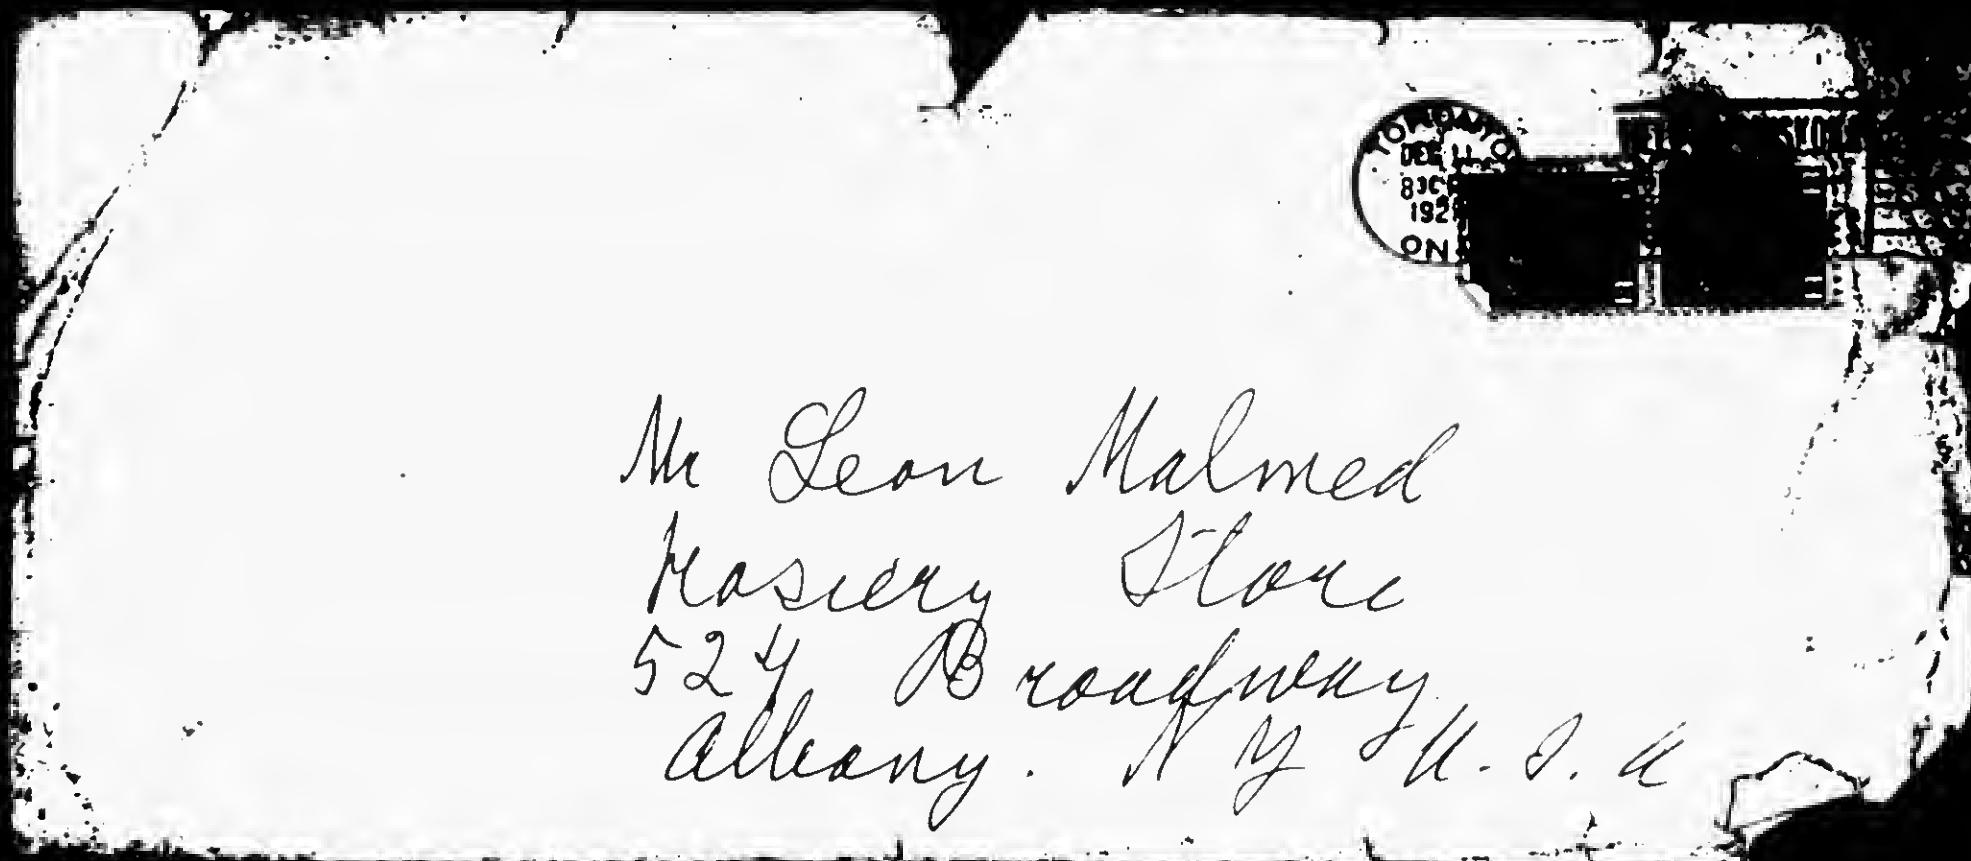 TORONTO
DEC 11
830P
192
ON
Mr Leon Malmed
Hosiery Store
524 Broadway
Albany. N Y U. S. A